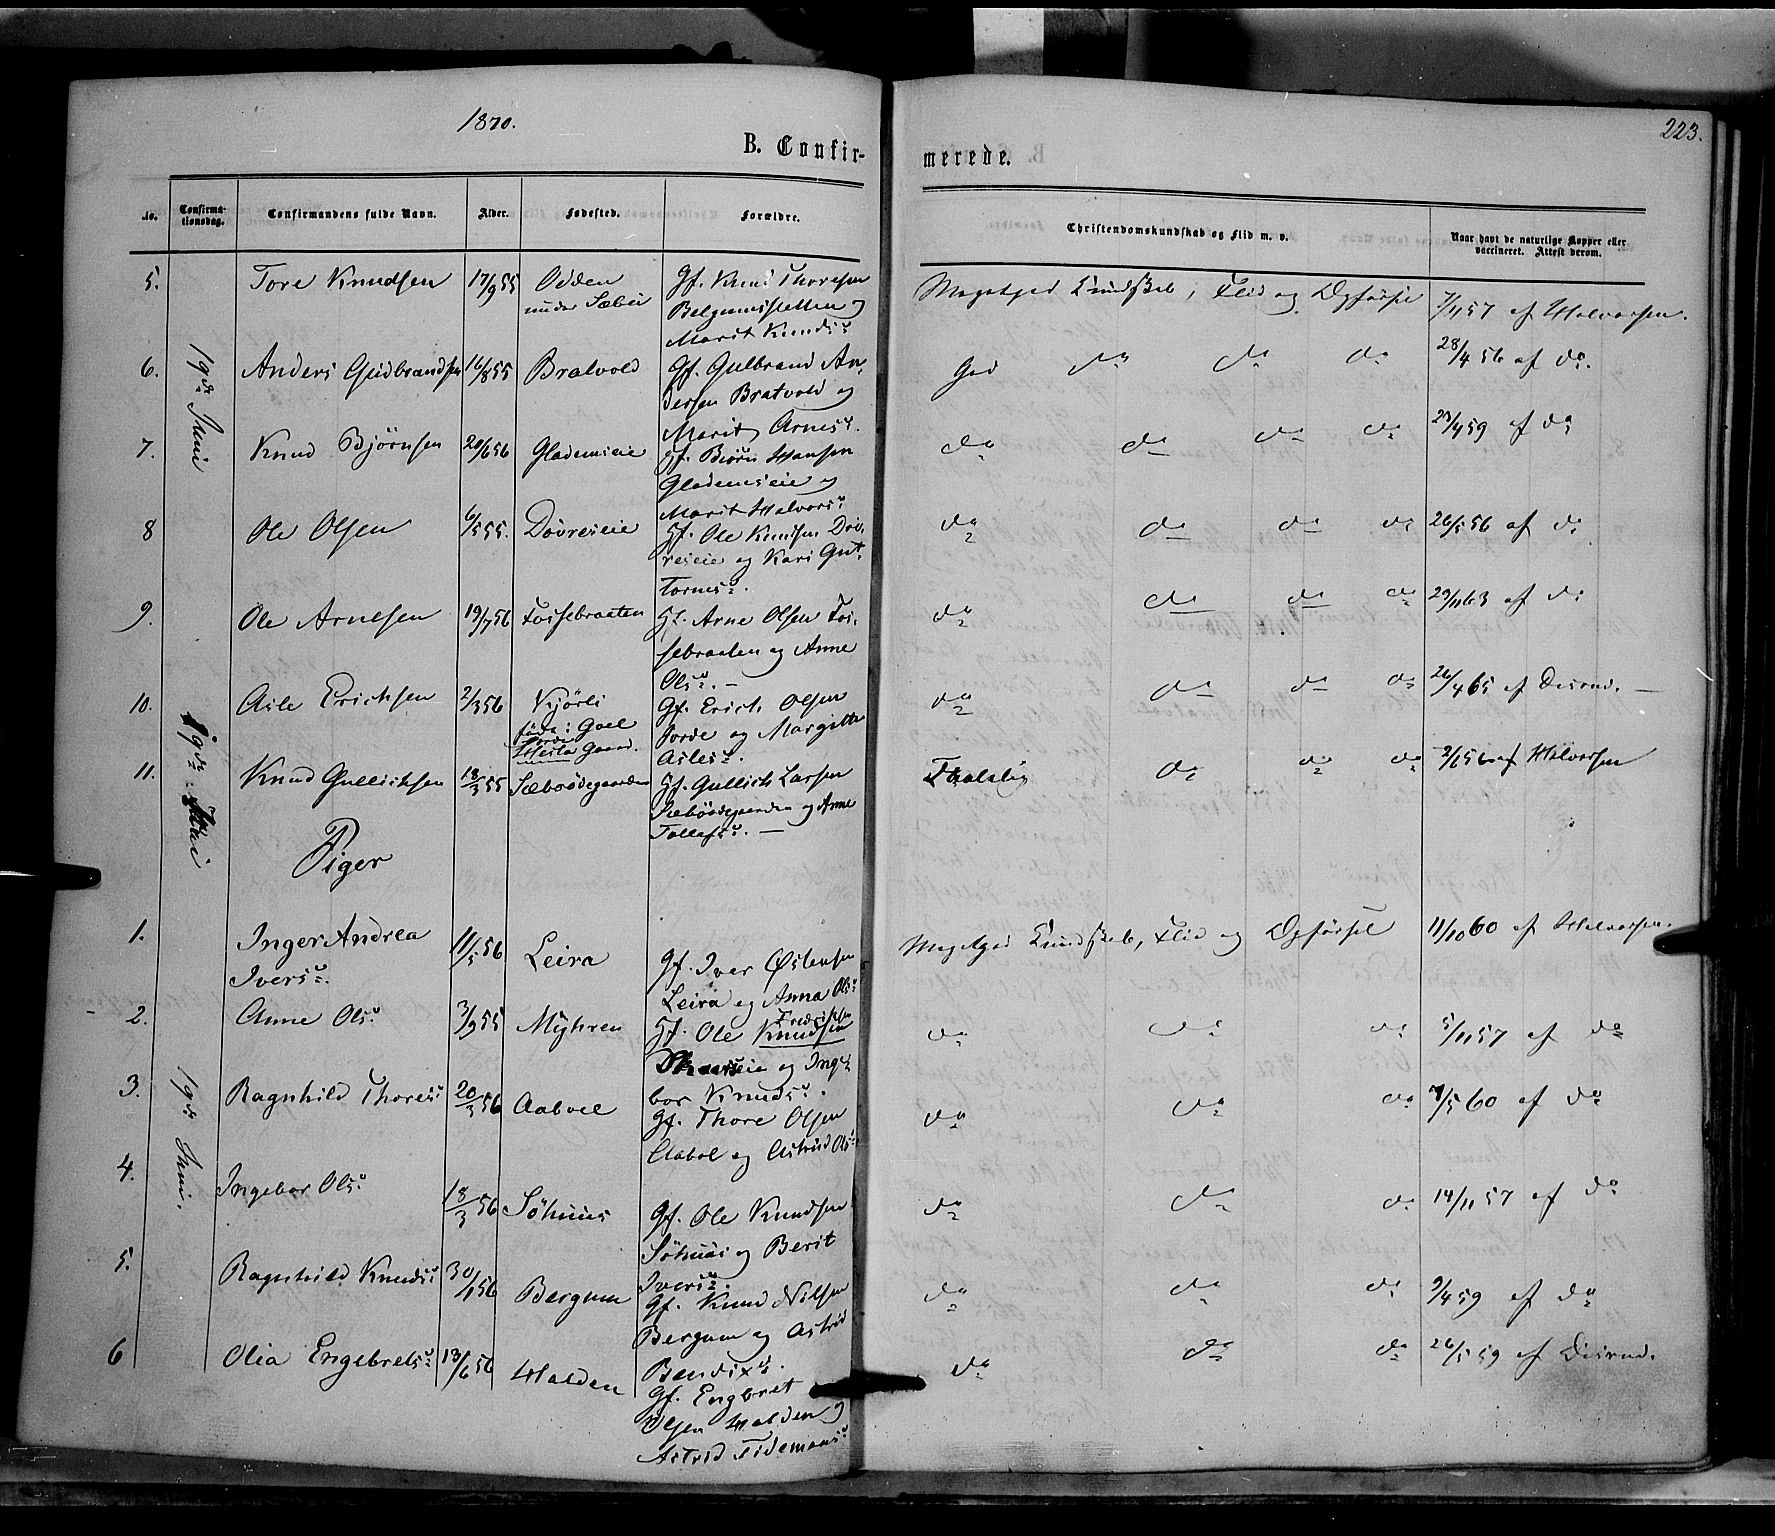 1870.
223.
B. Confir-
merede.
No.
Confirma-
tionsdag.
Confirmandens fulde Navn.
Alder.
Fødested.
Forældre.
Christendomskundskab og Flid m. v.
Naar havt de naturlige Kopper eller
vaccineret. Attest derom.
19de Juni
5. Tore Knudsen 17/9 55 Odden
under Sæbø
Gf. Knud Thoresen
og
Marit Knudsd.
Megetgod Kundskab, Flid og Opførsel 7/11 57 af Halvorsen.
6. Anders Gudbrandsen 16/8 55 Bratvold
Gf. Gulbrand An-
dersen Bratvold og
Marit Arnesd.
God do do do 28/4 56 af do.
7. Knud Bjørnsen 20/6 56 Glademseie
Gf. Biørn Hansen
Glademseie og
Marit Halvorsd.
do do do do 23/4 59 af do
8 Ole Olsen 6/5 55. Dovreseie
Gf. Ole Knudsen Dov-
reseie og Kari Gut-
tormsd.
do do do do 26/5 56 af do
9. Ole Arnesen 19/7 56 Fossebraaten
Gf. Arne Olsen Fos-
sebraaten og Anne
Olsd. —
do do do do 29/11 63 af do
10. Asle Erichsen 2/3 56 Kjørli
født i Goel
Gf. Erich Olsen
Jorde og Margitte
Aslesd.
do do do do 26/4 65 af Disrud. —
19de Juni
11. Knud Gullichsen 18/3 55 Sæbøødegaarden
Gf. Gullich Larsen
Sæbøødegaarden og Anne
Tollefsd. —
Taalelig do do do 2/6 56 af Halvorsen
Piger
1. Inger Andrea
Iversd.
11/5 56 Leira
Gf. Iver Østensen
Leira og Anna Olsd.
Megetgod Kundskab, Flid og Opførsel 11/10 60 af Halvorsen.
2. Anne Olsd. 3/9 55 Myhren
Fredriksen
Gf. Ole Knudsen
og Inge-
bor Knudsd.
do do do 5/11 57 af do
19de Juni.
3. Ragnhild Thoresd. 20/3 56 Aabøel
Gf. Thore Olsen
Aabøl og Astrid Olsd.
do do do 7/5 60 af do
4. Ingebor Olsd. 18/3 56 Söhuus
Gf. Ole Knudsen
Söhuus og Berit
Iversd.
do do do 14/11 57 af do
5. Ragnhild Knudsd. 30/1 56 Bergum
Gf. Knud Nilsen
Bergum og Astrid
Bendixd.
do do do 9/4 59 af do
6 Olia Engebretsd. 13/6 56 Halden
Gf. Engbret
Olsen Halden og
Astrid Tidemansd.
do do do 26/5 59 af Disrud.